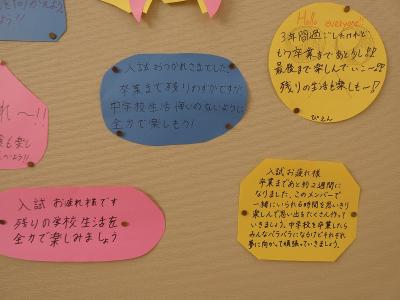 を向かえよう
よう!!
Hello everyone!!
3年間過ごしたけれど
もう卒業まであと少し!!
最後まで楽しんでいこー!!
残りの生活も楽しもー!!
ぴえん
入試おつかれさまでした。
卒業まで残りわずかですが、
中学校生活 悔いのないように
全力で楽しもう!
れ〜!!
入試 お疲れ様です
残りの学校生活を
全力で楽しみましょう
入試お疲れ様。
卒業まであと約2週間に
なりました。このメンバーで
一緒にいられる時間を思いきり
楽しんで思い出をたくさん作って
いきましょう。中学校を卒業したら
みんなバラバラになるけどそれぞれ
夢に向かって頑張っていきましょう。